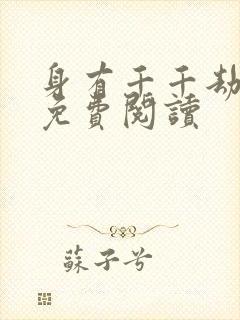 身有千千劫
免費閱讀
蘇子兮